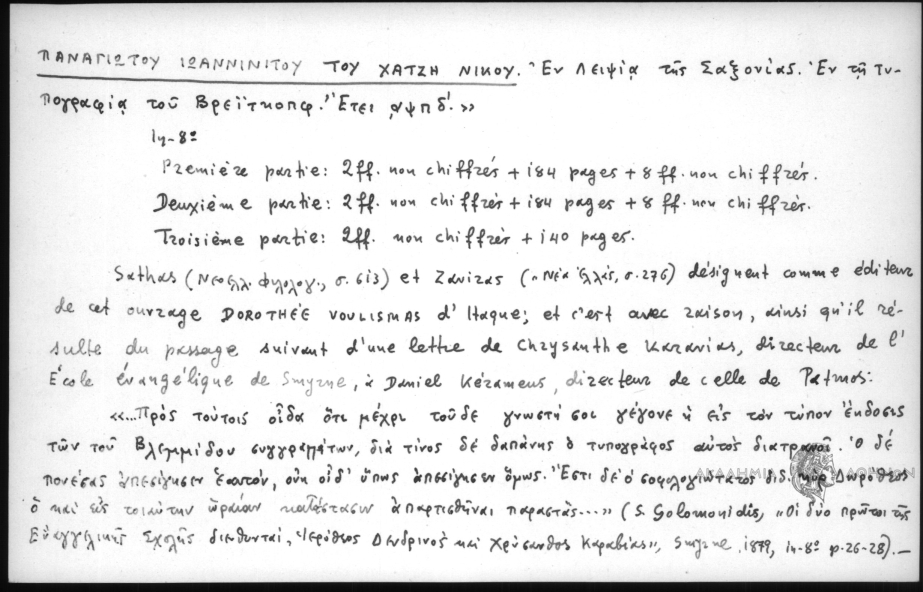 ΠΑΝΑΓΙΩΤΟΥ ΙΩΑΝΝΙΝΙΤΟΥ ΤΟΥ ΧΑΤΖΗ ΝΙΚΟΥ. Ἐν Λειψίᾳ τῆς Σαξονίας. Ἐν τῇ Τυ-
πογραφίᾳ τοῦ Βρεϊτκοπφ. Ἔτει ͵αψπδ΄.»
In-8º
Première partie: 2 ff. non chiffrés + 184 pages + 8 ff. non chiffrés.
Deuxième partie: 2 ff. non chiffrés + 184 pages + 8 ff. non chiffrés.
Troisième partie: 2 ff. non chiffrés + 140 pages.
Sathas (Νεοελλ. Φιλολογ., σ. 613) et Zaviras («Νέα Ἑλλάς, σ. 276) désignent comme éditeur
de cet ouvrage DOROTHÉE VOULISMAS d'Itaque; et c'est avec raison, ainsi qu'il ré-
sulte du passage suivant d'une lettre de Chrysanthe Karavias, directeur de l'
École évangélique de Smyrne, à Daniel Kérameus, directeur de celle de Patmos:
«...Πρὸς τούτοις οἶδα ὅτι μέχρι τοῦδε γνωστή σοι γέγονε ἡ εἰς τὸν τύπον ἔκδοσις
τῶν τοῦ Βλεμμίδου συγγραμμάτων, διὰ τίνος δὲ δαπάνης ὁ τυπογράφος αὐτὸς διατρανοῖ. Ὁ δέ
πονέσας ἀπεσίγησεν ἑαυτόν, οὐκ οἶδ' ὅπως ἀπεσίγησεν ὅμως. Ἔστι δὲ ὁ σοφολογιώτατος διδ. κὺρ Δωρόθεος
ὁ καὶ εἰς τοιαύτην ὡραίαν κατάστασιν ἀπαρτισθῆναι παραστάς...» (S. Solomonidis, «Οἱ δύο πρῶτοι τῆς
Εὐαγγελικῆς Σχολῆς διευθυνταί, Ἱερόθεος Δενδρινὸς καὶ Χρύσανθος Καραβίας», Smyrne, 1879, in-8º p. 26-28).—
ΑΚΑΔΗΜΙΑ ΑΘΗΝΩΝ